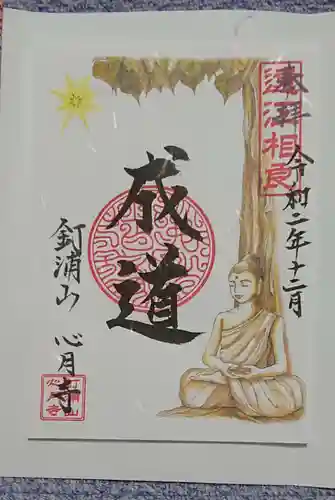 奉拝
遠江相良
令和二年十二月
成道
釘浦山 心月寺